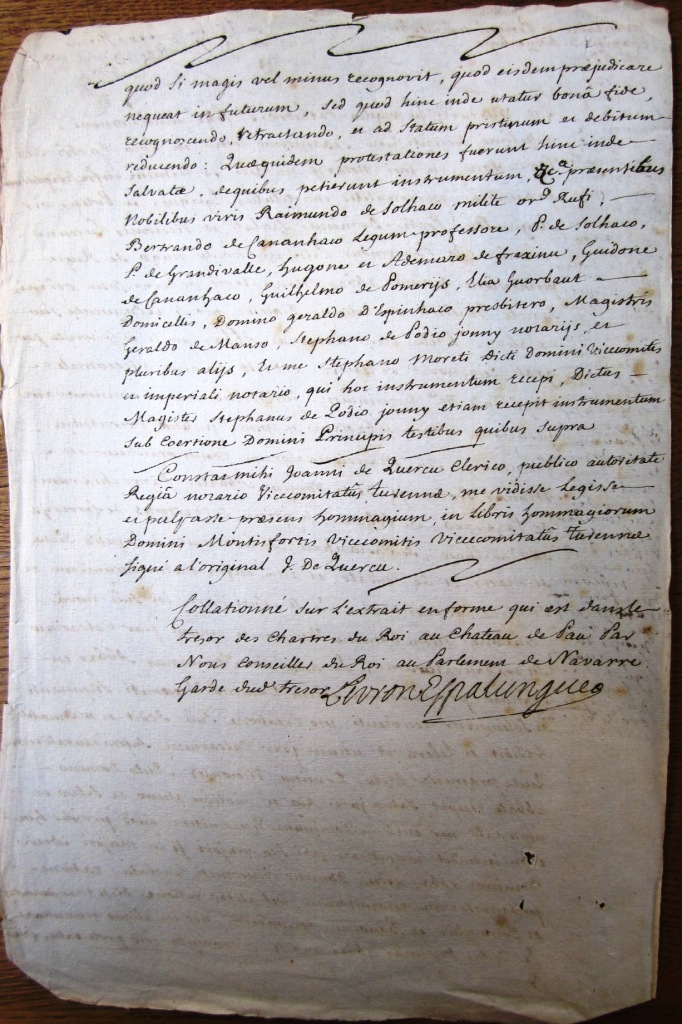 quod si magis vel minus recognovit, quod eisdem præjudicare
nequeat in futurum, sed quod hinc inde utatur bonâ fide,
recognoscendo, retractando, et ad statum pristinum et debitum
reducendo: Quæquidem protestationes fuerunt hinc inde
salvatæ, dequibus petierunt instrumentum, &c.ª præsentibus
Nobilibus viris Raimundo de Solhaco milite ord. Rufi,
Bertrando de Cananhaco Legum professore, P. de Solhaco,
P. de Grandivalle, hugone et Ademaro de fraxinu, Guidone
de Cananhaco, Guilhelmo de Pomerijs, Elia Guorbaut
Domicellis, Domino geraldo D'Espinhaco presbitero, Magistris
Geraldo de Manso, Stephano de Podio jonny notarijs, et
pluribus alijs, Et me Stephano Moreti Dicti Domini Vicecomitis
et imperiali notario, qui hoc instrumentum recepi, Dictus
Magister Stephanus de Podio jonny etiam recepit instrumentum
sub Coertione Domini Principis testibus quibus supra
Constat mihi Joanni de Quercu Clerico, publico autoritate
Regiâ notario Vicecomitatûs turennæ, me vidisse Legisse
et pulpasse præsens hommagium, in Libris hommagiorum
Domini Montisfortis Vicecomitis Vicecomitatûs turennæ
signé a l'original J. De Quercu.
Collationné sur L'extrait en forme qui est dans le
tresor des Chartres du Roi au Chateau de Pau Par
Nous Conseiller du Roi au Parlement de Navarre
Garde dud. tresor Livron Espalungue